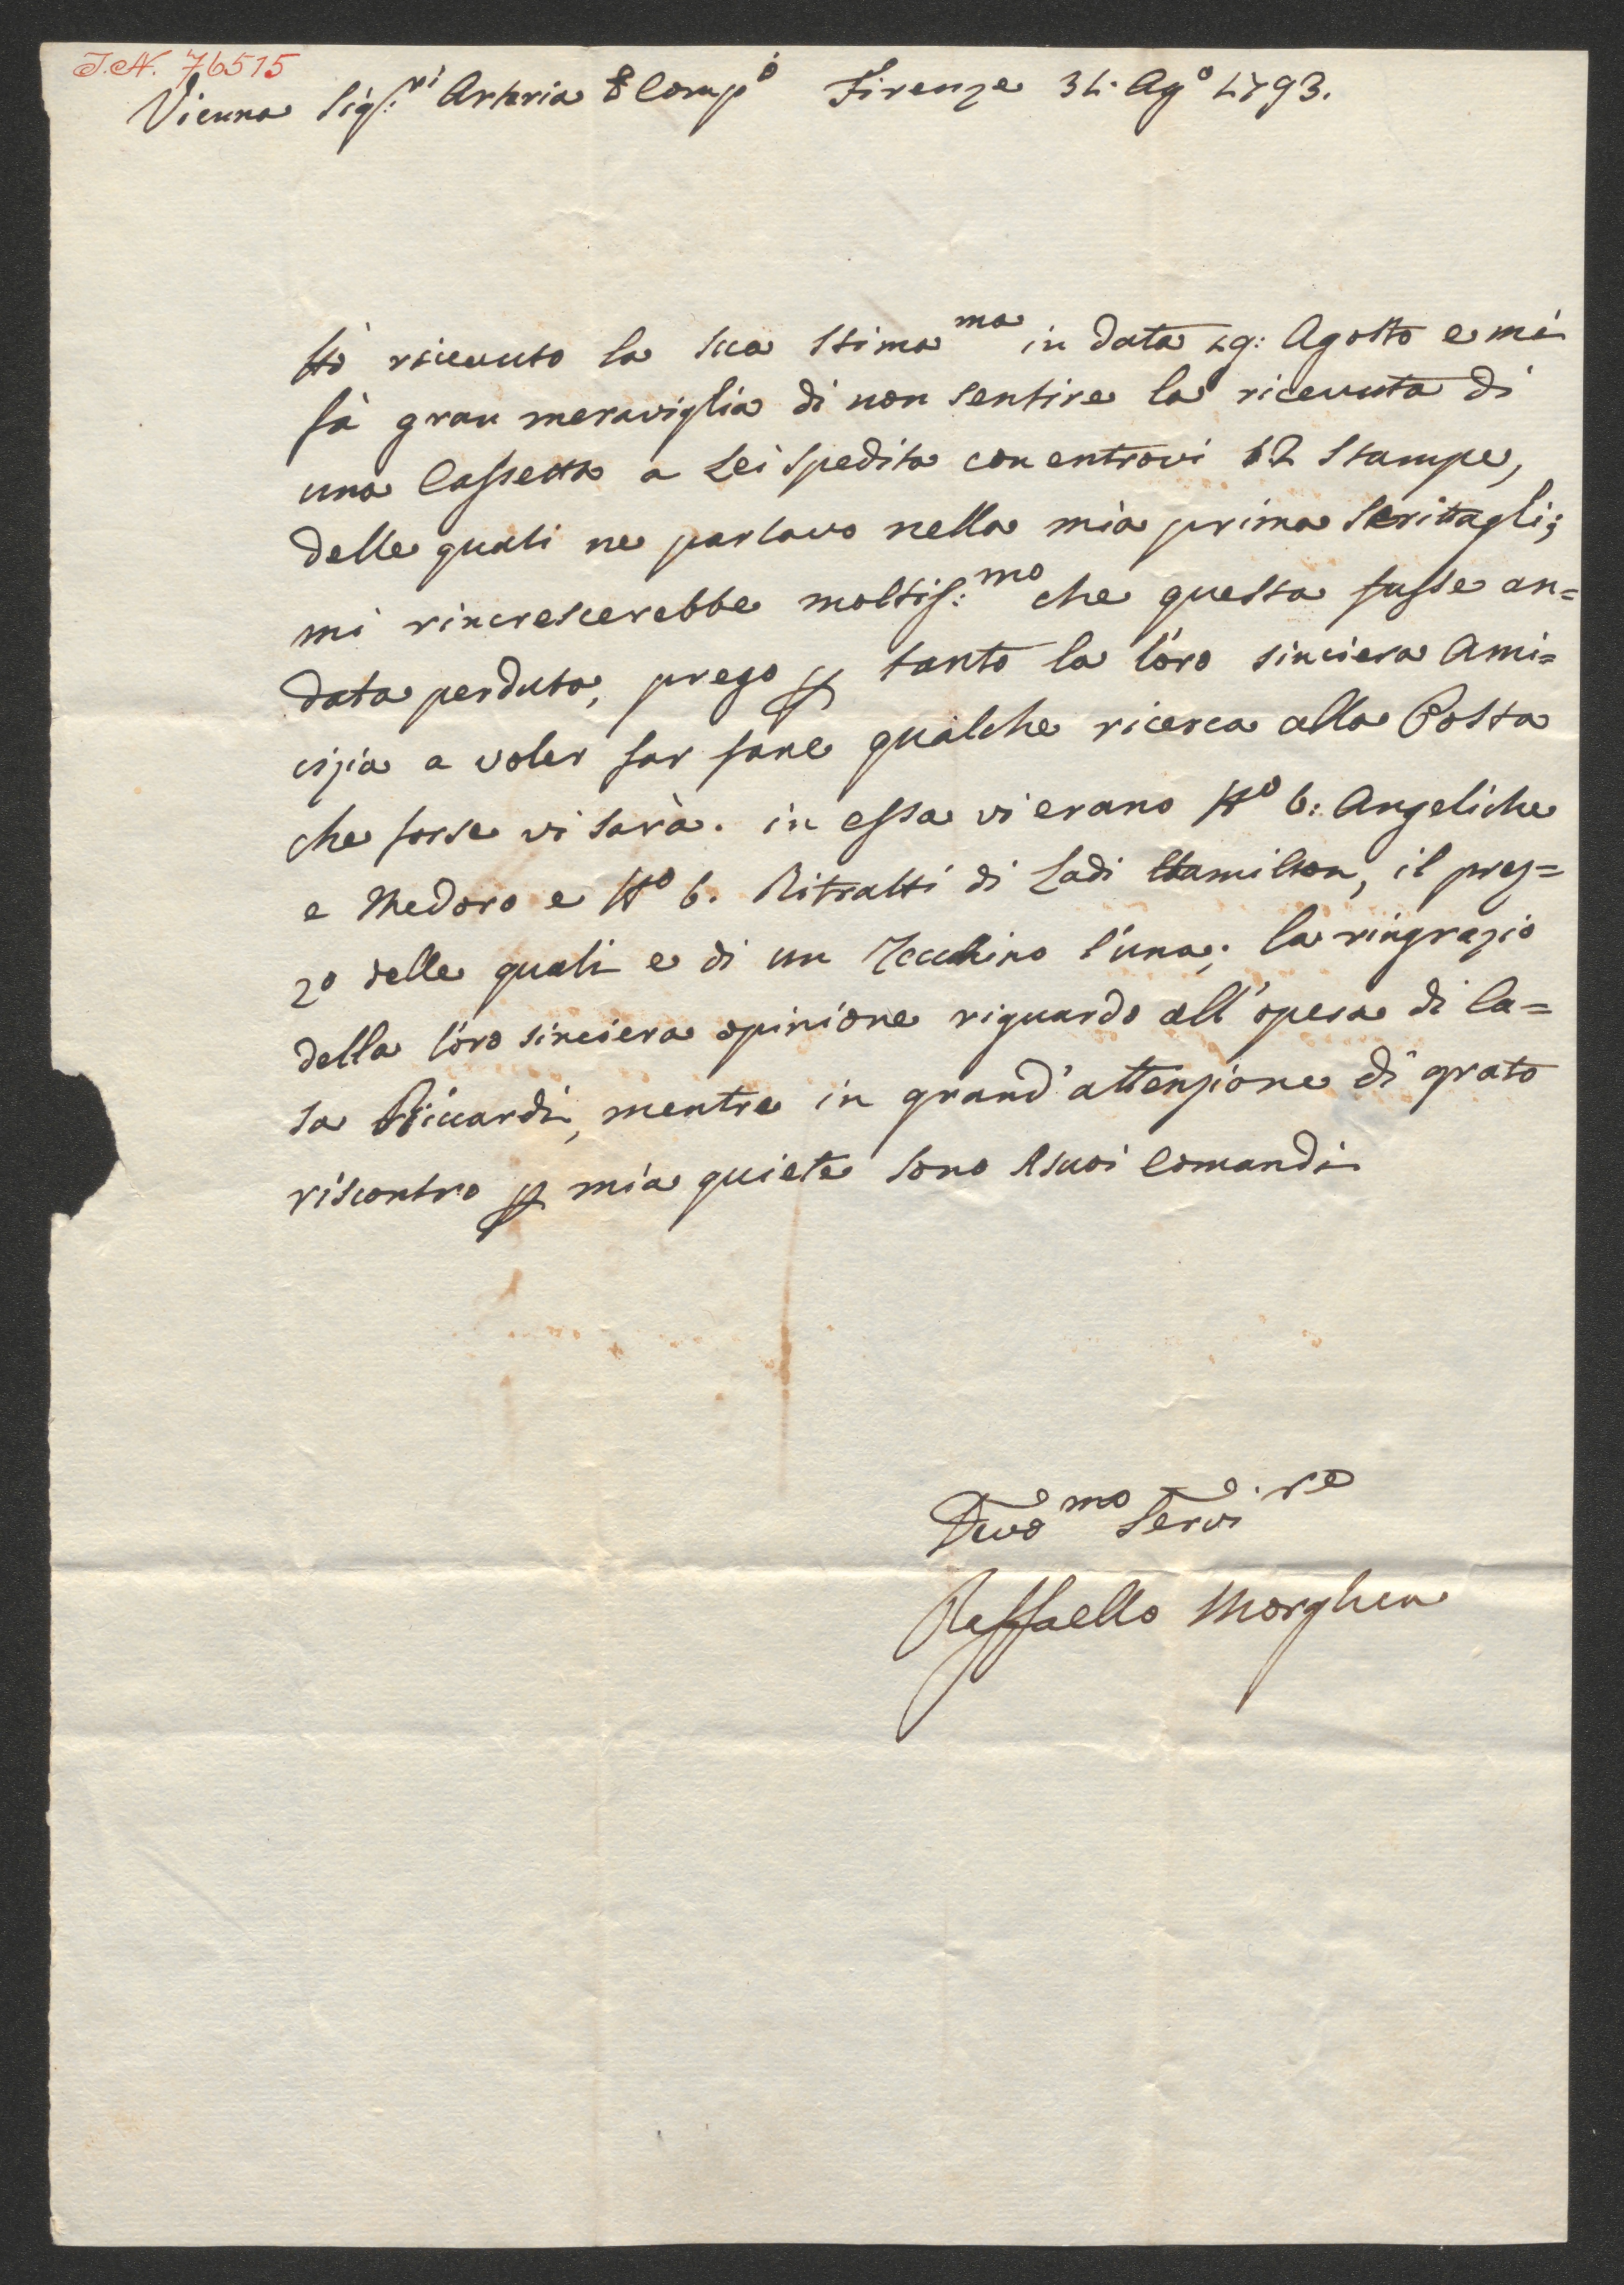 I.N. 76515
Vienna Sig:ri Arteria & Compo Firenze 31. Ago 1793.
Hò ricevuto la sua Stimama in data 19: Agosto e mi
fà gran meraviglia di non sentire la ricevuta di
una Cassetta a Lei spedita con entrovi 12 Stampe,
delle quali ne parlavo nella mia prima Scrittagli;
mi rincrescerebbe moltis:mo che questa fusse an=
data perduta, prego p tanto la loro sinciera Ami=
cizia a voler far fare qualche ricerca alla Posta
che forse vi sarà. in essa vi erano No 6: Angeliche
e Medoro e No 6. Ritratti di Ladi Hamilton, il prez=
zo delle quali e di un Zecchino l'una; la ringrazio
della loro sinciera opinione riguardo all'opera di Ca=
sa Riccardi, mentre in grand'attenzione di grato
riscontro p mia quiete sono A suoi Comandi
Devomo Servi.re
Raffaello Morghen